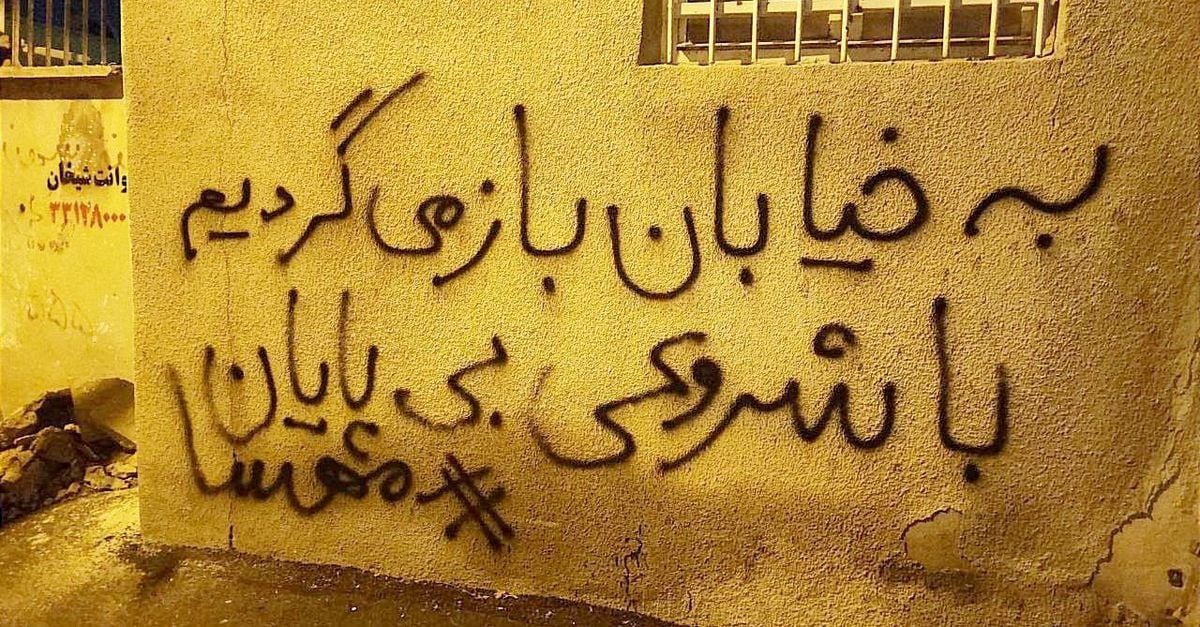 به خیابان باز می گردیم
با شروعی بی پایان
#مهسا
وانت شیخان
۳۳۱۲۸۰۰۰